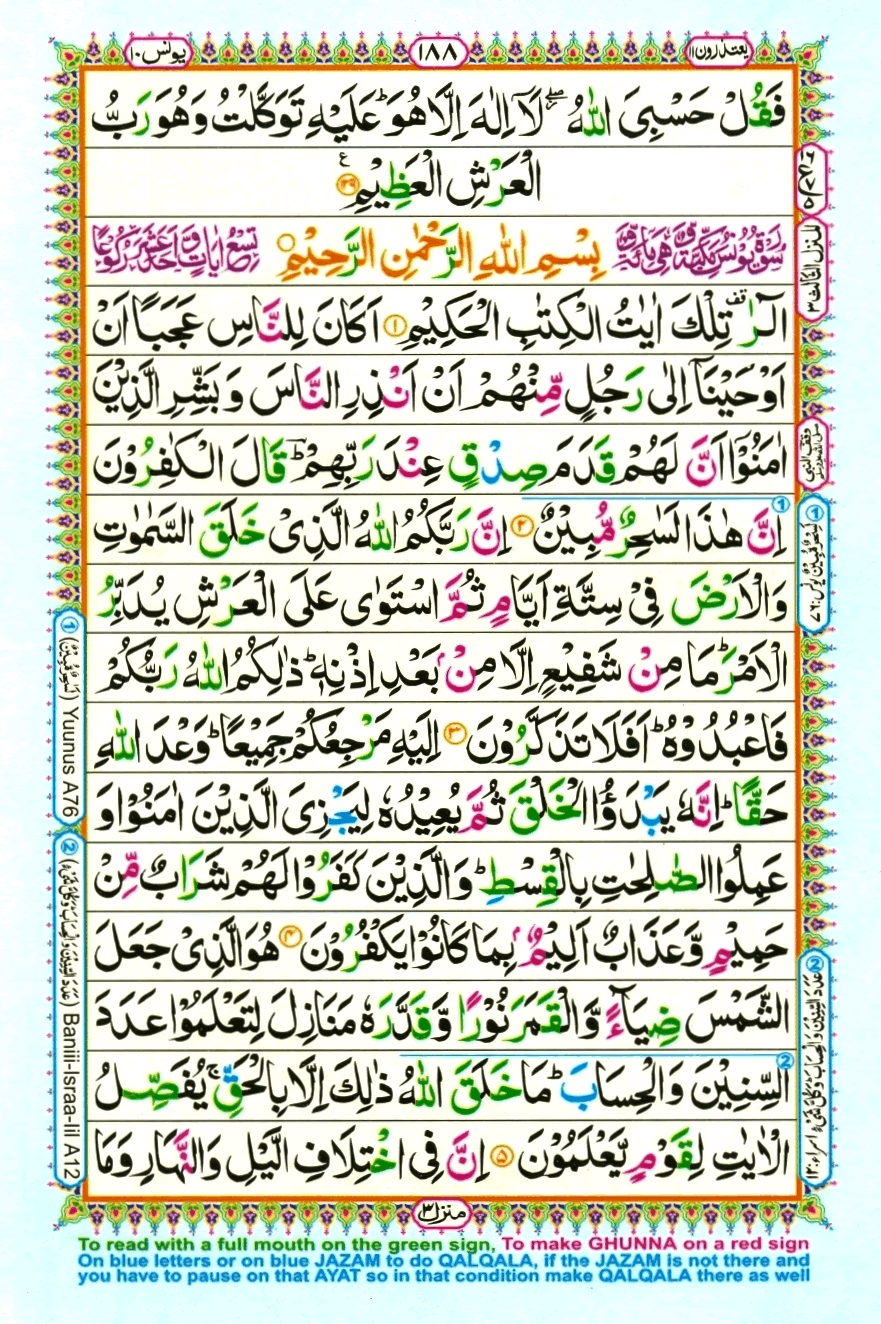 يعتذرون ١١
١٨٨
يونس ١٠
فَقُلْ حَسْبِىَ اللهُ ۖ لَآ اِلٰهَ اِلَّا هُوَ ؕ عَلَيْهِ تَوَكَّلْتُ وَهُوَ رَبُّ
الْعَرْشِ الْعَظِيْمِ ﴿۱۲۹﴾
سورة يونس مكية وهى مائة بِسْمِ اللهِ الرَّحْمٰنِ الرَّحِيْمِ تسع اٰيات واحد عشر ركوعا
الٓرٰ تف تِلْكَ اٰيٰتُ الْكِتٰبِ الْحَكِيْمِ ﴿۱﴾ اَكَانَ لِلنَّاسِ عَجَبًا اَنْ
اَوْحَيْنَآ اِلٰى رَجُلٍ مِّنْهُمْ اَنْ اَنْذِرِ النَّاسَ وَبَشِّرِ الَّذِيْنَ
اٰمَنُوْٓا اَنَّ لَهُمْ قَدَمَ صِدْقٍ عِنْدَ رَبِّهِمْ ؕ قَالَ الْكٰفِرُوْنَ
اِنَّ هٰذَا لَسٰحِرٌ مُّبِيْنٌ ﴿۲﴾ اِنَّ رَبَّكُمُ اللهُ الَّذِىْ خَلَقَ السَّمٰوٰتِ
وَالْاَرْضَ فِىْ سِتَّةِ اَيَّامٍ ثُمَّ اسْتَوٰى عَلَى الْعَرْشِ يُدَبِّرُ
الْاَمْرَ ؕ مَا مِنْ شَفِيْعٍ اِلَّا مِنْۢ بَعْدِ اِذْنِهٖ ؕ ذٰلِكُمُ اللهُ رَبُّكُمْ
فَاعْبُدُوْهُ ؕ اَفَلَا تَذَكَّرُوْنَ ﴿۳﴾ اِلَيْهِ مَرْجِعُكُمْ جَمِيْعًا ؕ وَعْدَ اللهِ
حَقًّا ؕ اِنَّهٗ يَبْدَؤُا الْخَلْقَ ثُمَّ يُعِيْدُهٗ لِيَجْزِىَ الَّذِيْنَ اٰمَنُوْا وَ
عَمِلُوا الصّٰلِحٰتِ بِالْقِسْطِ ؕ وَالَّذِيْنَ كَفَرُوْا لَهُمْ شَرَابٌ مِّنْ
حَمِيْمٍ وَّعَذَابٌ اَلِيْمٌۢ بِمَا كَانُوْا يَكْفُرُوْنَ ﴿۴﴾ هُوَ الَّذِىْ جَعَلَ
الشَّمْسَ ضِيَآءً وَّالْقَمَرَ نُوْرًا وَّقَدَّرَهٗ مَنَازِلَ لِتَعْلَمُوْا عَدَدَ
السِّنِيْنَ وَالْحِسَابَ ؕ مَا خَلَقَ اللهُ ذٰلِكَ اِلَّا بِالْحَقِّ ۚ يُفَصِّلُ
الْاٰيٰتِ لِقَوْمٍ يَّعْلَمُوْنَ ﴿۵﴾ اِنَّ فِى اخْتِلَافِ الَّيْلِ وَالنَّهَارِ وَمَا
المنزل الثالث ٣
وقف النبى
① Yuunus A76
② Baniii-Israa-Iil A12
منزل ٣
To read with a full mouth on the green sign, To make GHUNNA on a red sign
On blue letters or on blue JAZAM to do QALQALA, if the JAZAM is not there and
you have to pause on that AYAT so in that condition make QALQALA there as well